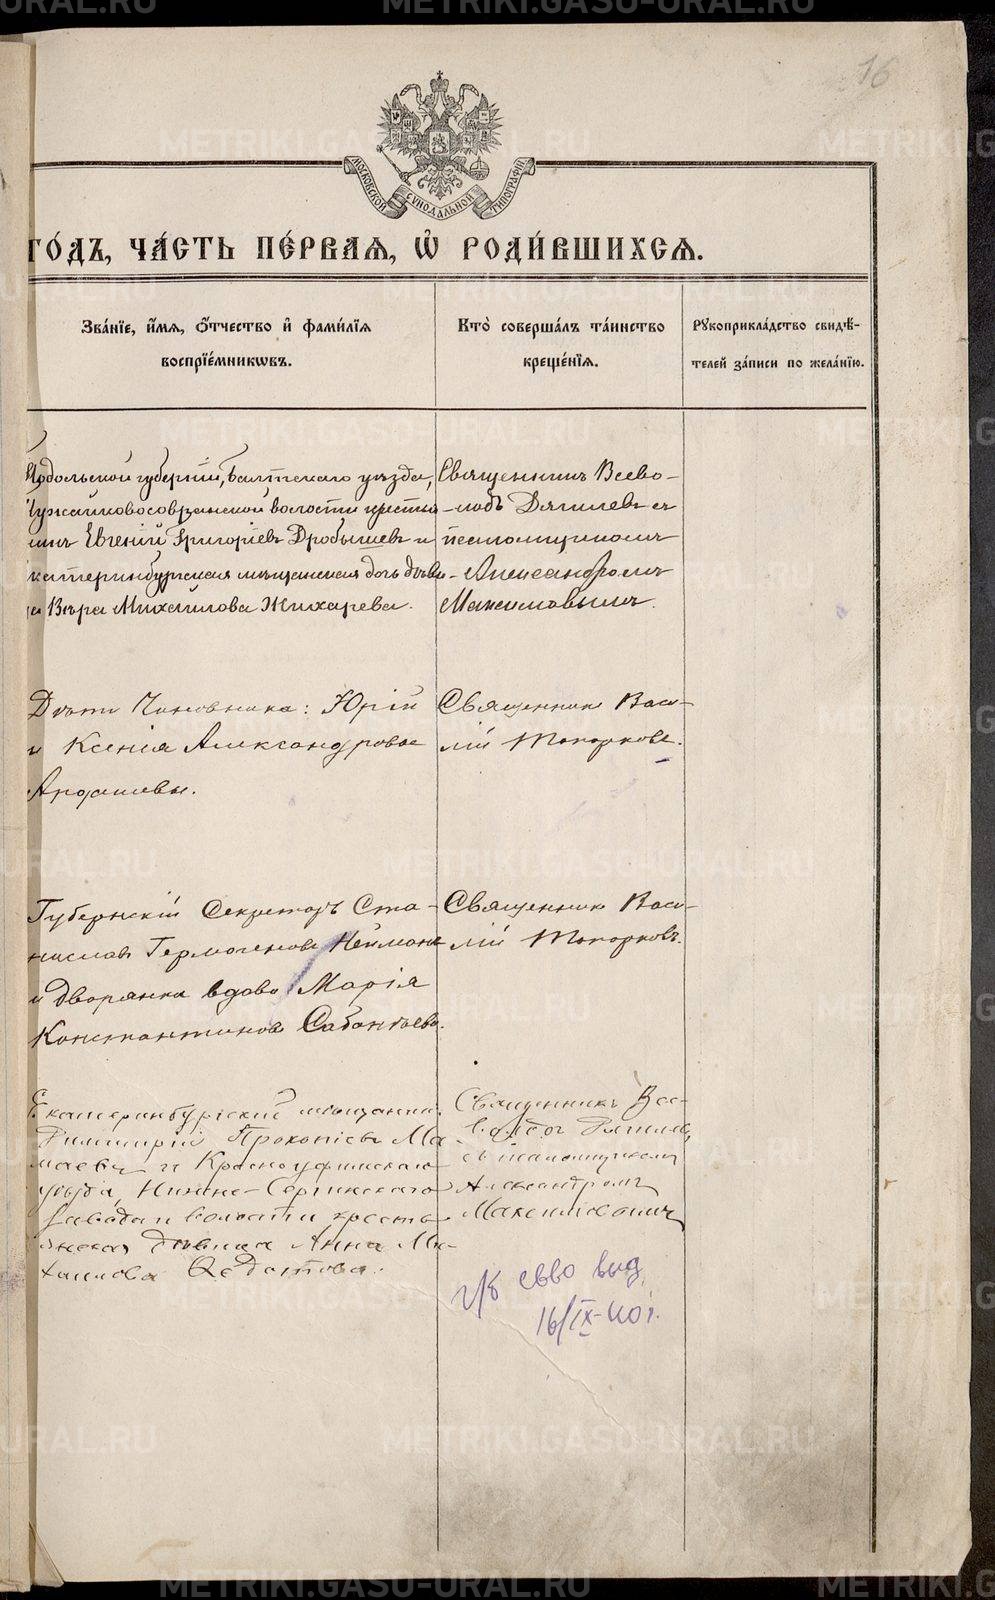 16
МОСКОВСКОЙ СУНОДАЛЬНОЙ ТИПОГРАФІИ
ГО́ДЪ, ЧА́СТЬ ПЕ́РВАѦ, Ѡ҆ РОДИ́ВШИХСѦ.
Зва́нїе, и҆́мѧ, ѻ҆́тчество и҆ фами́лїѧ
воспрїе́мникѡвъ.
Кто̀ соверша́лъ та́инство
креще́нїѧ.
Рꙋкоприкла́дство свидѣ́-
телей за́писи по жела́нїю.
Подольской губерніи, Балтскаго уѣзда,
волости крестья
нинъ Евгеній Григоріевъ Дробышевъ и
катеринбургская мѣщанская дочь дѣви
ца Вѣра Михаилова Жихарева.
Священникъ Всево-
лодъ Дягилевъ съ
псаломщикомъ
Александромъ
Максимовымъ.
Дѣти Чиновника: Юрій
и Ксенія Александровы
Ардашевы.
Священникъ Васи-
лій Топорковъ.
Губернскій Секретарь Ста-
ниславъ Гермогеновъ Нейманъ
и дворянка вдова Марія
Константинова Сабантьева.
Священникъ Васи-
лій Топорковъ.
Екатеринбургскій мѣщанинъ
Димитрій Прокопіевъ Ма
маевъ и Красноуфимскаго
уѣзда, Нижне-Сергинскаго
завода и волости кресть
янская дѣвица Анна Ми-
хаилова Ѳедотова.
Священникъ Все-
володъ Дягилевъ
съ псаломщикомъ
Александромъ
Максимовымъ
свво выд
16/IX-